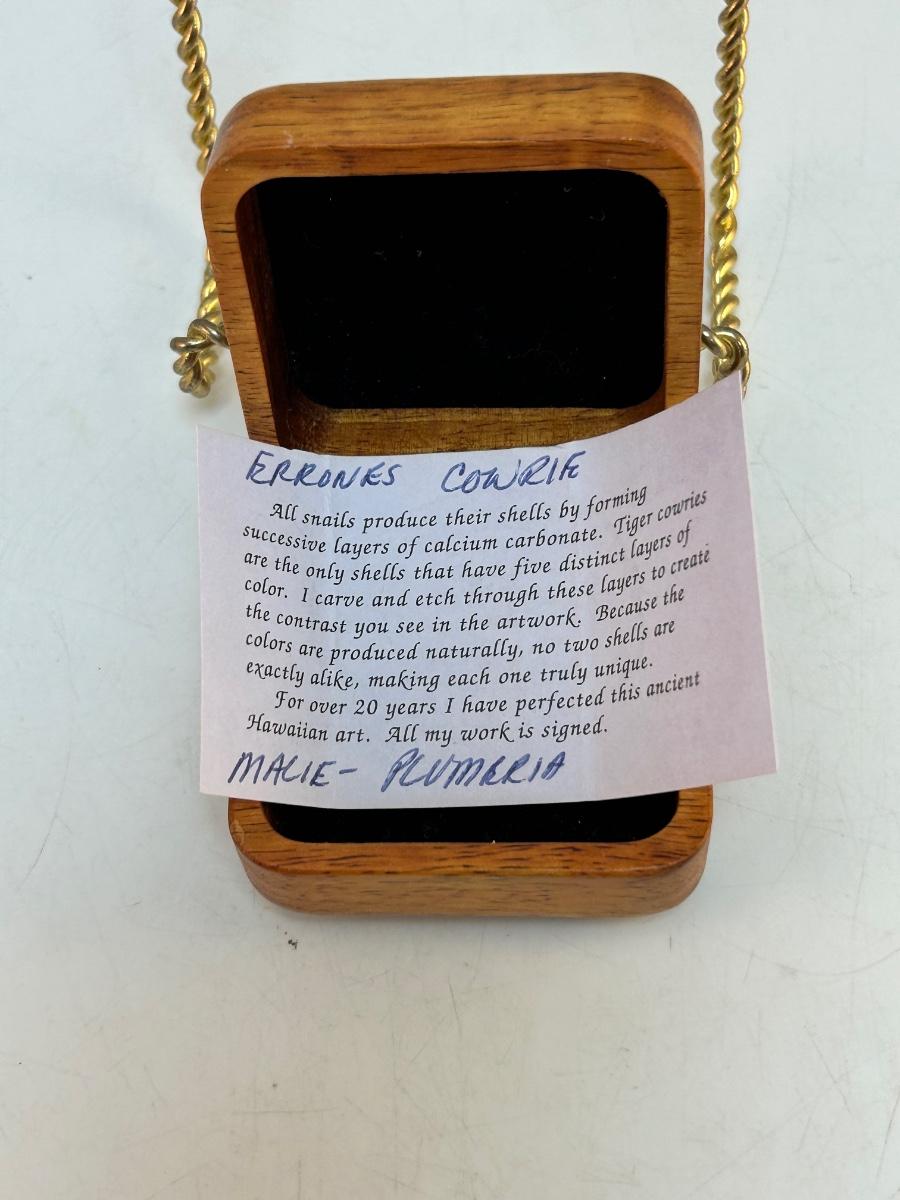 ERRONES COWRIE
All snails produce their shells by forming
successive layers of calcium carbonate. Tiger cowries
are the only shells that have five distinct layers of
color. I carve and etch through these layers to create
the contrast you see in the artwork. Because the
colors are produced naturally, no two shells are
exactly alike, making each one truly unique.
For over 20 years I have perfected this ancient
Hawaiian art. All my work is signed.
MALIE- PLUMERIA